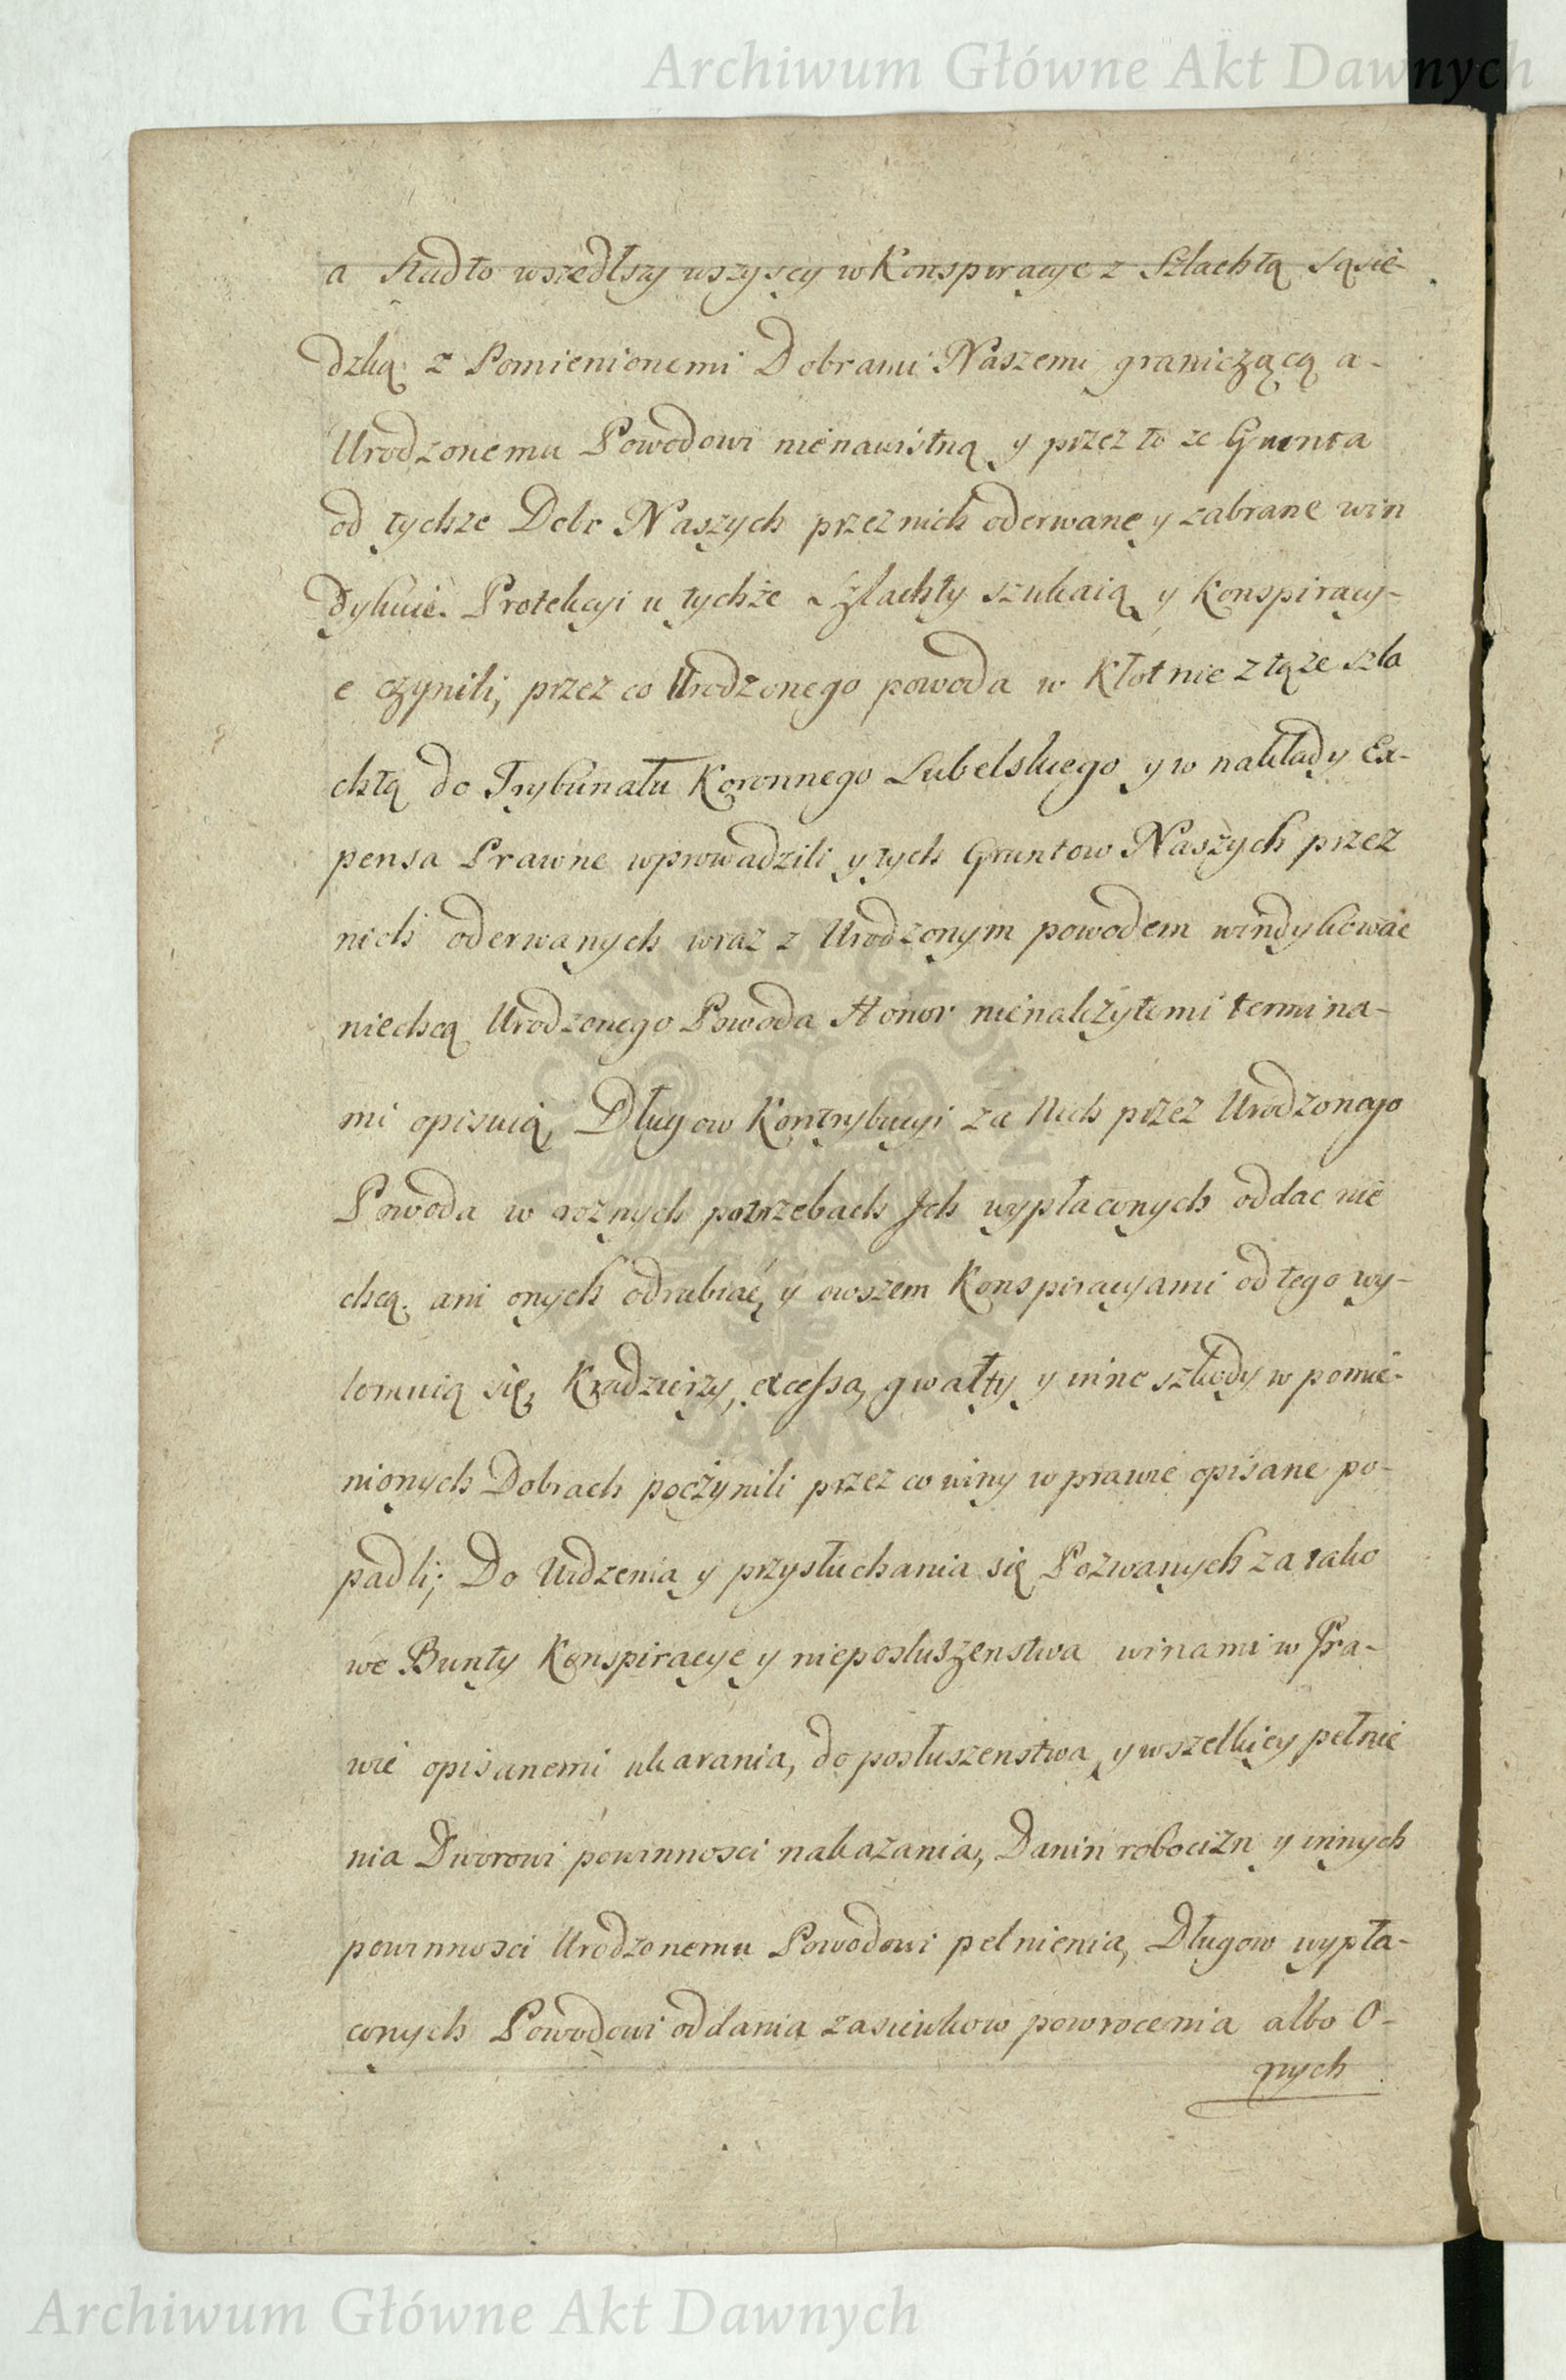 Archiwum Główne Akt Dawnych
a Nadto wszedłszy wszyscy w Konspiracye z Szlachtą sąsie-
dzką z Pomienionemi Dobrami Naszemi graniczącą a-
Urodzonemu Powodowi nienawistną y przez to ze Grunta
od tychze Dobr Naszych przez nich oderwane y zabrane win
dykuie. Protekcyi u tychże Szlachty szukaią y Konspiracy-
e czynili, przez co Urodzonego powoda w Kłotnie z tąze szla
chtą do Trybunału Koronnego Lubelskiego y w nakłady Ex-
pensa Prawne wprowadzili y tych Gruntow Naszych przez
nich oderwanych wraz z Urodzonym powodem windykować
niechcą Urodzonego Powoda Honor nienależytemi termina-
mi opisuią, Długow Kontrybucyi za Nich przez Urodzonego
Powoda w roznych potrzebach Ich wypłaconych oddac nie
chcą. ani onych odrabiać, y owszem Konspiracyami od tego wy-
lomuią się, Kradzierzy, excessa, gwałty y inne szkody w pomie-
nionych Dobrach poczynili przez co winy w prawie opisane po-
padli; Do Widzenia y przysłuchania się Pozwanych za tako
we Bunty Konspiracye y nieposłuszenstwa winami w Pra-
wie opisanemi ukarania, do posłuszenstwa y wszelkiey pełnie
nia Dworowi powinnosci nakazania, Danin robocizn y innych
powinnosci Urodzonemu Powodowi pełnienia, Długow wypła-
conych Powodowi oddania zasiewkow powrocenia albo O-
nych
ARCHIWUM GŁÓWNE AKT DAWNYCH
Archiwum Główne Akt Dawnych